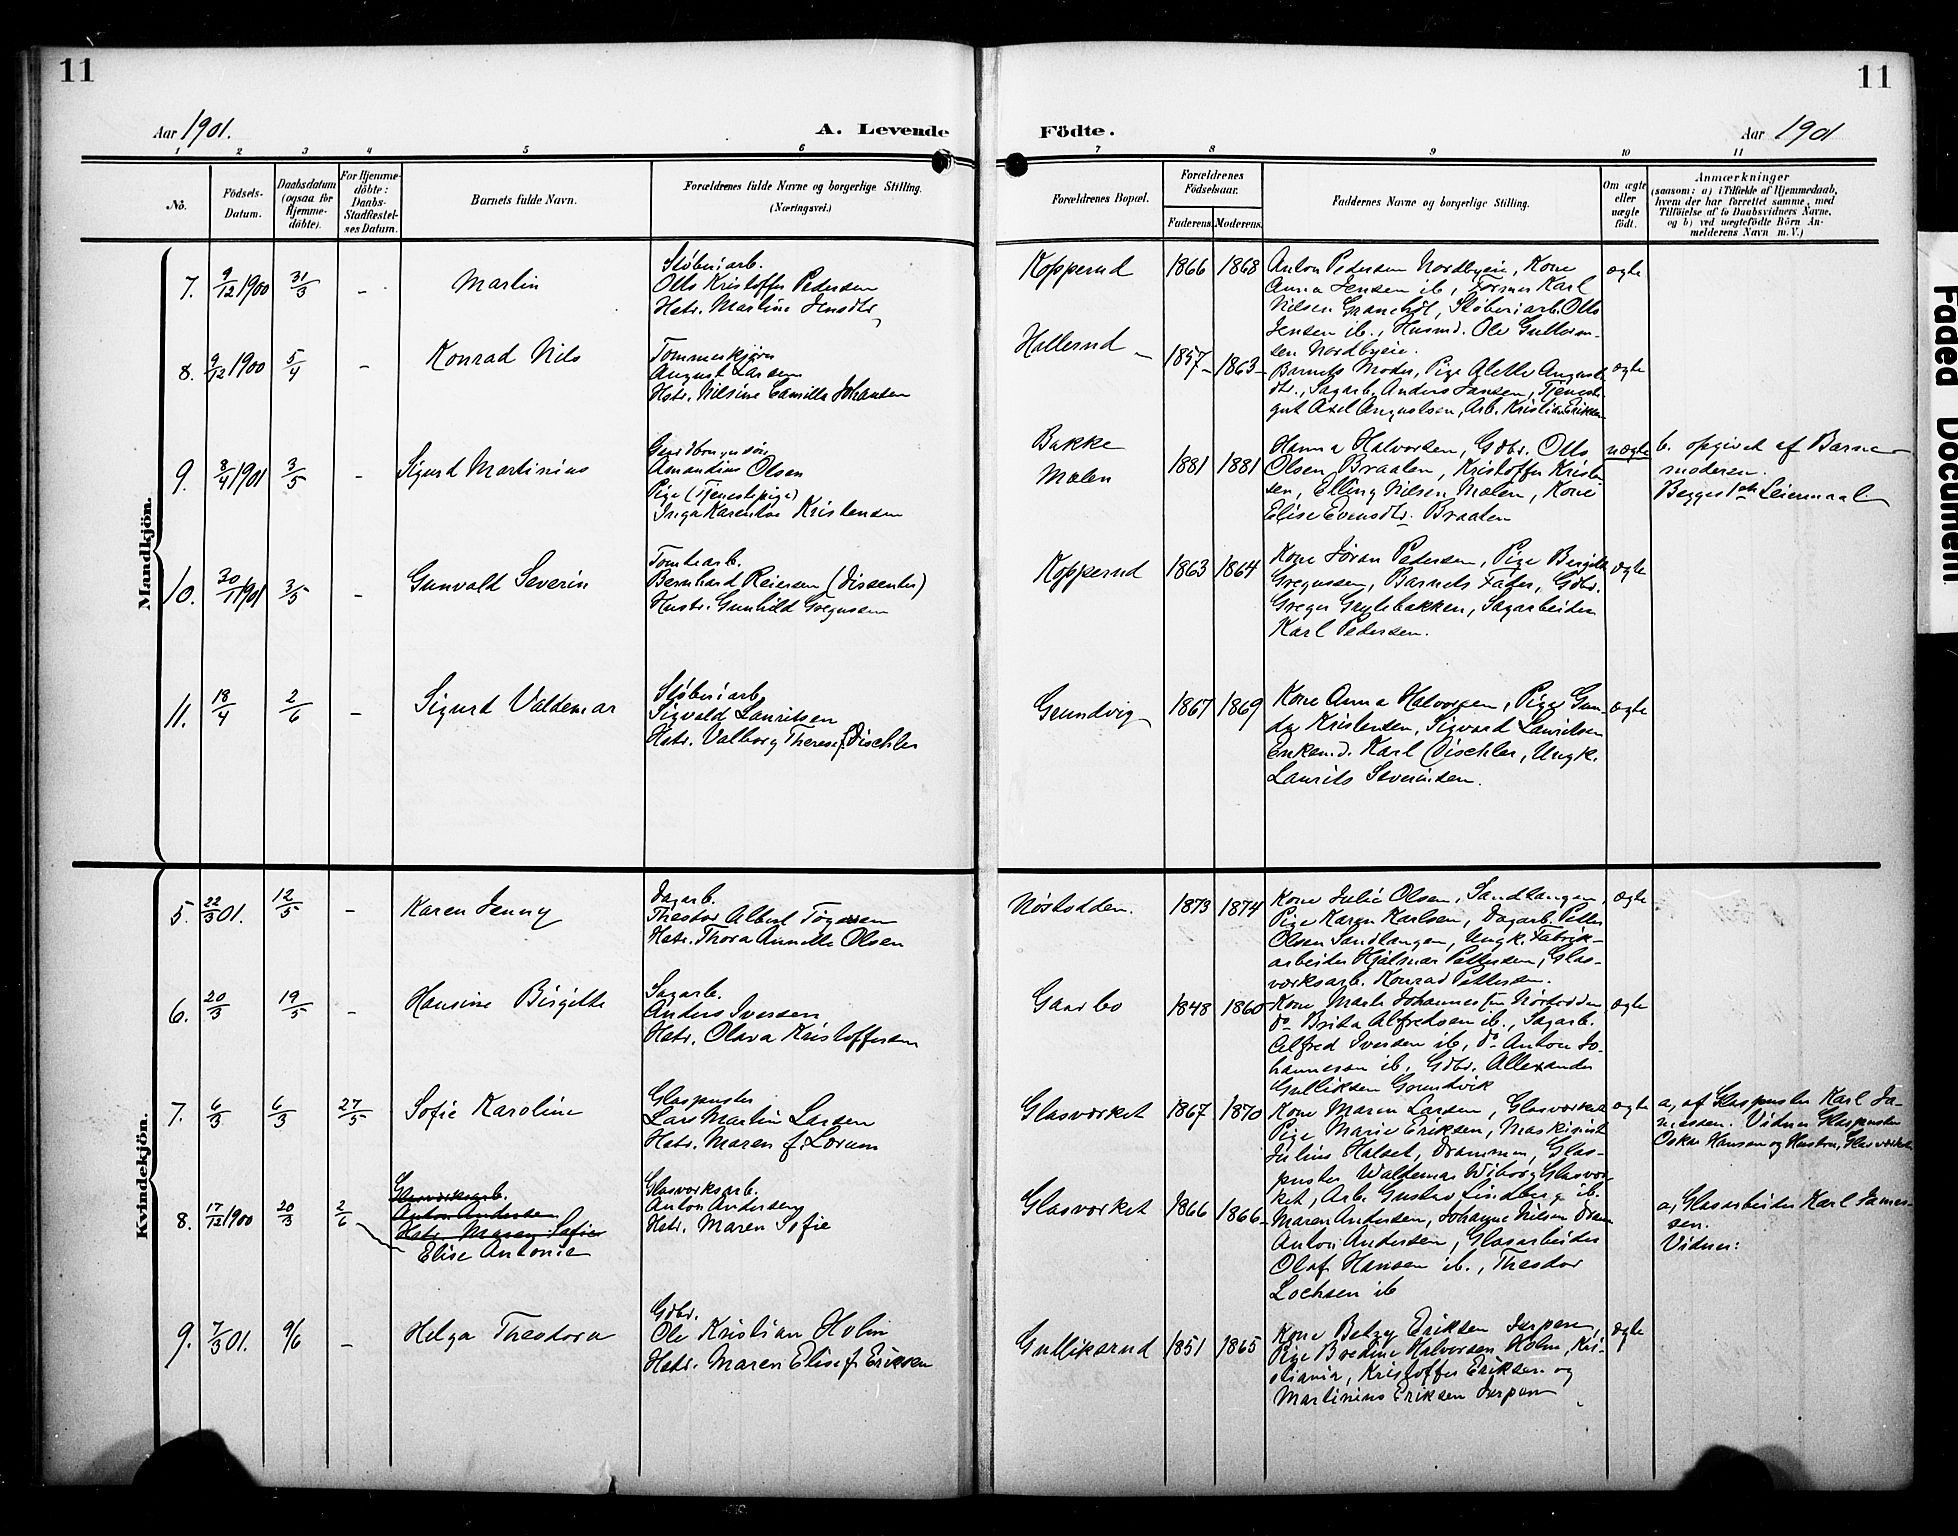 11
11
Aar 1901.
A. Levende
Födte.
Aar 1901
1 2 3 4 5 6 7 8 9 10 11
No.
Födsels-
Datum.
Daabsdatum
(ogsaa for
Hjemme-
döbte).
For Hjemme-
döbte:
Daabs-
Stadfæstel-
ses Datum.
Barnets fulde Navn.
Forældrenes fulde Navne og borgerlige Stilling.
(Næringsvei.)
Forældrenes Bopæl.
Forældrenes
Födselsaar.
Faderens. Moderens.
Faddernes Navne og borgerlige Stilling.
Om ægte
eller
uægte
födt.
Anmærkninger
(saasom: a) i Tilfælde af Hjemmedaab,
hvem der har forrettet samme, med
Tilföielse af to Daabsvidners Navne,
og b) ved uægtefödte Börn An-
melderens Navn m. V.)
Mandkjön.
7. 9/12 1900 31/3 - Martin
Støberiarb.
Otto Kristoffer Pedersen
Hstr. Martine Jensdtr.
Kopperud 1866 1868
Anton Pedersen Nordbyeie, Kone
Anna Jensen ib, Former Karl
Nilsen Granholt, Støberiarb. Otto
Jensen ib., Husmd. Ole Gullorm-
sen Nordbyeie.
ægte
8. 9/12 1900 5/4 - Konrad Nils
Tømmerkjører
August Larsen
Hstr. Nilsine Camilla Johansen
Hallerud - 1857 - 1863 -
Barnets Moder, Pige Alette August-
dtr., Sagarb. Anders Jansen, Tjeneste-
gut Axel Augustsen, Arb. Kristian Eriksen
ægte
9. 8/4 1901 3/5 - Sigurd Martinius
Gaardbrugersøn
Amandius Olsen
Pige (Tjenestepige)
Inga Karentine Kristensen
Bakke
Mælen
1881 1881
Hanna Halvorsen, Gdbr. Otto
Olsen Braaten, Kristoffer Kristen-
sen, Elling Nilsen Mælen, Kone
Elise Evensdtr. Braaten
uægte
b. opgivet af Barne-
moderen.
Begges 1ste Leiermaal
10. 30/1 1901 3/5 - Gunvald Severin
Tomtearb.
Bernhard Reiersen (Dissenter)
Hustr. Gunhild Gregussen
Kopperud 1863 1864
Kone Jøran Pedersen, Pige Bergitte
Gregussen, Barnets Fader, Gdbr.
Greger Grytebakken, Sagarbeider
Karl Pedersen.
ægte
11. 18/4 2/6 - Sigurd Valdemar
Støberiarb.
Sigvald Lauritsen
Hstr. Valborg Therese f. Dischler
Grundvig 1867 1869
Kone Anna Halvorsen, Pige Gun-
da Kristensen, Sigvard Lauritsen
Enkemd. Karl Dischler, Ungk.
Laurits Severinsen.
ægte
Kvindekjön.
5. 22/3 01. 12/5 - Karen Jenny
Dagarb.
Theodor Albert Tøgersen
Hstr. Thora Annette Olsen
Nøstodden. 1873 1874
Kone Julie Olsen, Sandtangen,
Pige Karen Karlsen, Dagarb. Petter
Olsen Sandtangen, Ungk. Fabrik-
arbeider Hjalmar Pettersen, Glas-
verksarb. Konrad Pettersen.
ægte
6. 20/3 19/5 - Hansine Birgitte
Sagarb.
Anders Iversen
Hstr. Olava Kristoffersen
Gaarbo 1848 1860
Kone Marte Johannessen Nøstodden
do Brita Alfredsen ib., Sagarb.
Alfred Iversen ib, do Anton Jo-
hannesen ib, Gdbr. Allexander
Gulliksen Grundvik
ægte
7. 6/3 6/3 27/5 Sofie Karoline
Glaspuster
Lars Martin Larsen
Hstr. Maren f. Loram
Glasverket 1867 1870
Kone Maren Larsen, Glasverket
Pige Marie Eriksen, Maskinist
Julius Halset, Drammen, Glas-
puster Waldemar Wiborg Glasver-
ket, Arb. Gustav Lindberg ib.
ægte
a, af Glaspuster Karl Ja-
messen. Vidner Glaspuster
Oskar Hansen og Hustru, Glasverket
8. 17/12 1900 20/3 2/6
Glasverksarb.
Anton Andersen
Hstr. Maren Sofie
Elise Antonie
Glasverksarb.
Anton Andersen
Hstr. Maren Sofie
Glasverket 1866 1866 -
Maren Andersen, Johanne Nilsen Dram
Anton Andersen, Glasarbeider
Olaf Hansen ib., Theodor
Lochsen ib
a, Glasarbeider Karl James-
sen.
Vidner:
9. 7/3 01. 9/6 - Helga Theodora
Gdbr.
Ole Kristian Holm
Hstr. Maren Elise f. Eriksen
Gulliksrud 1851 1865
Kone Betzy Eriksen Jarpen,
Pige Bredine Halvorsen Holm, Kri-
stiania, Kristoffer Eriksen og
Martinius Eriksen Jarpen
ægte
Faded Document.